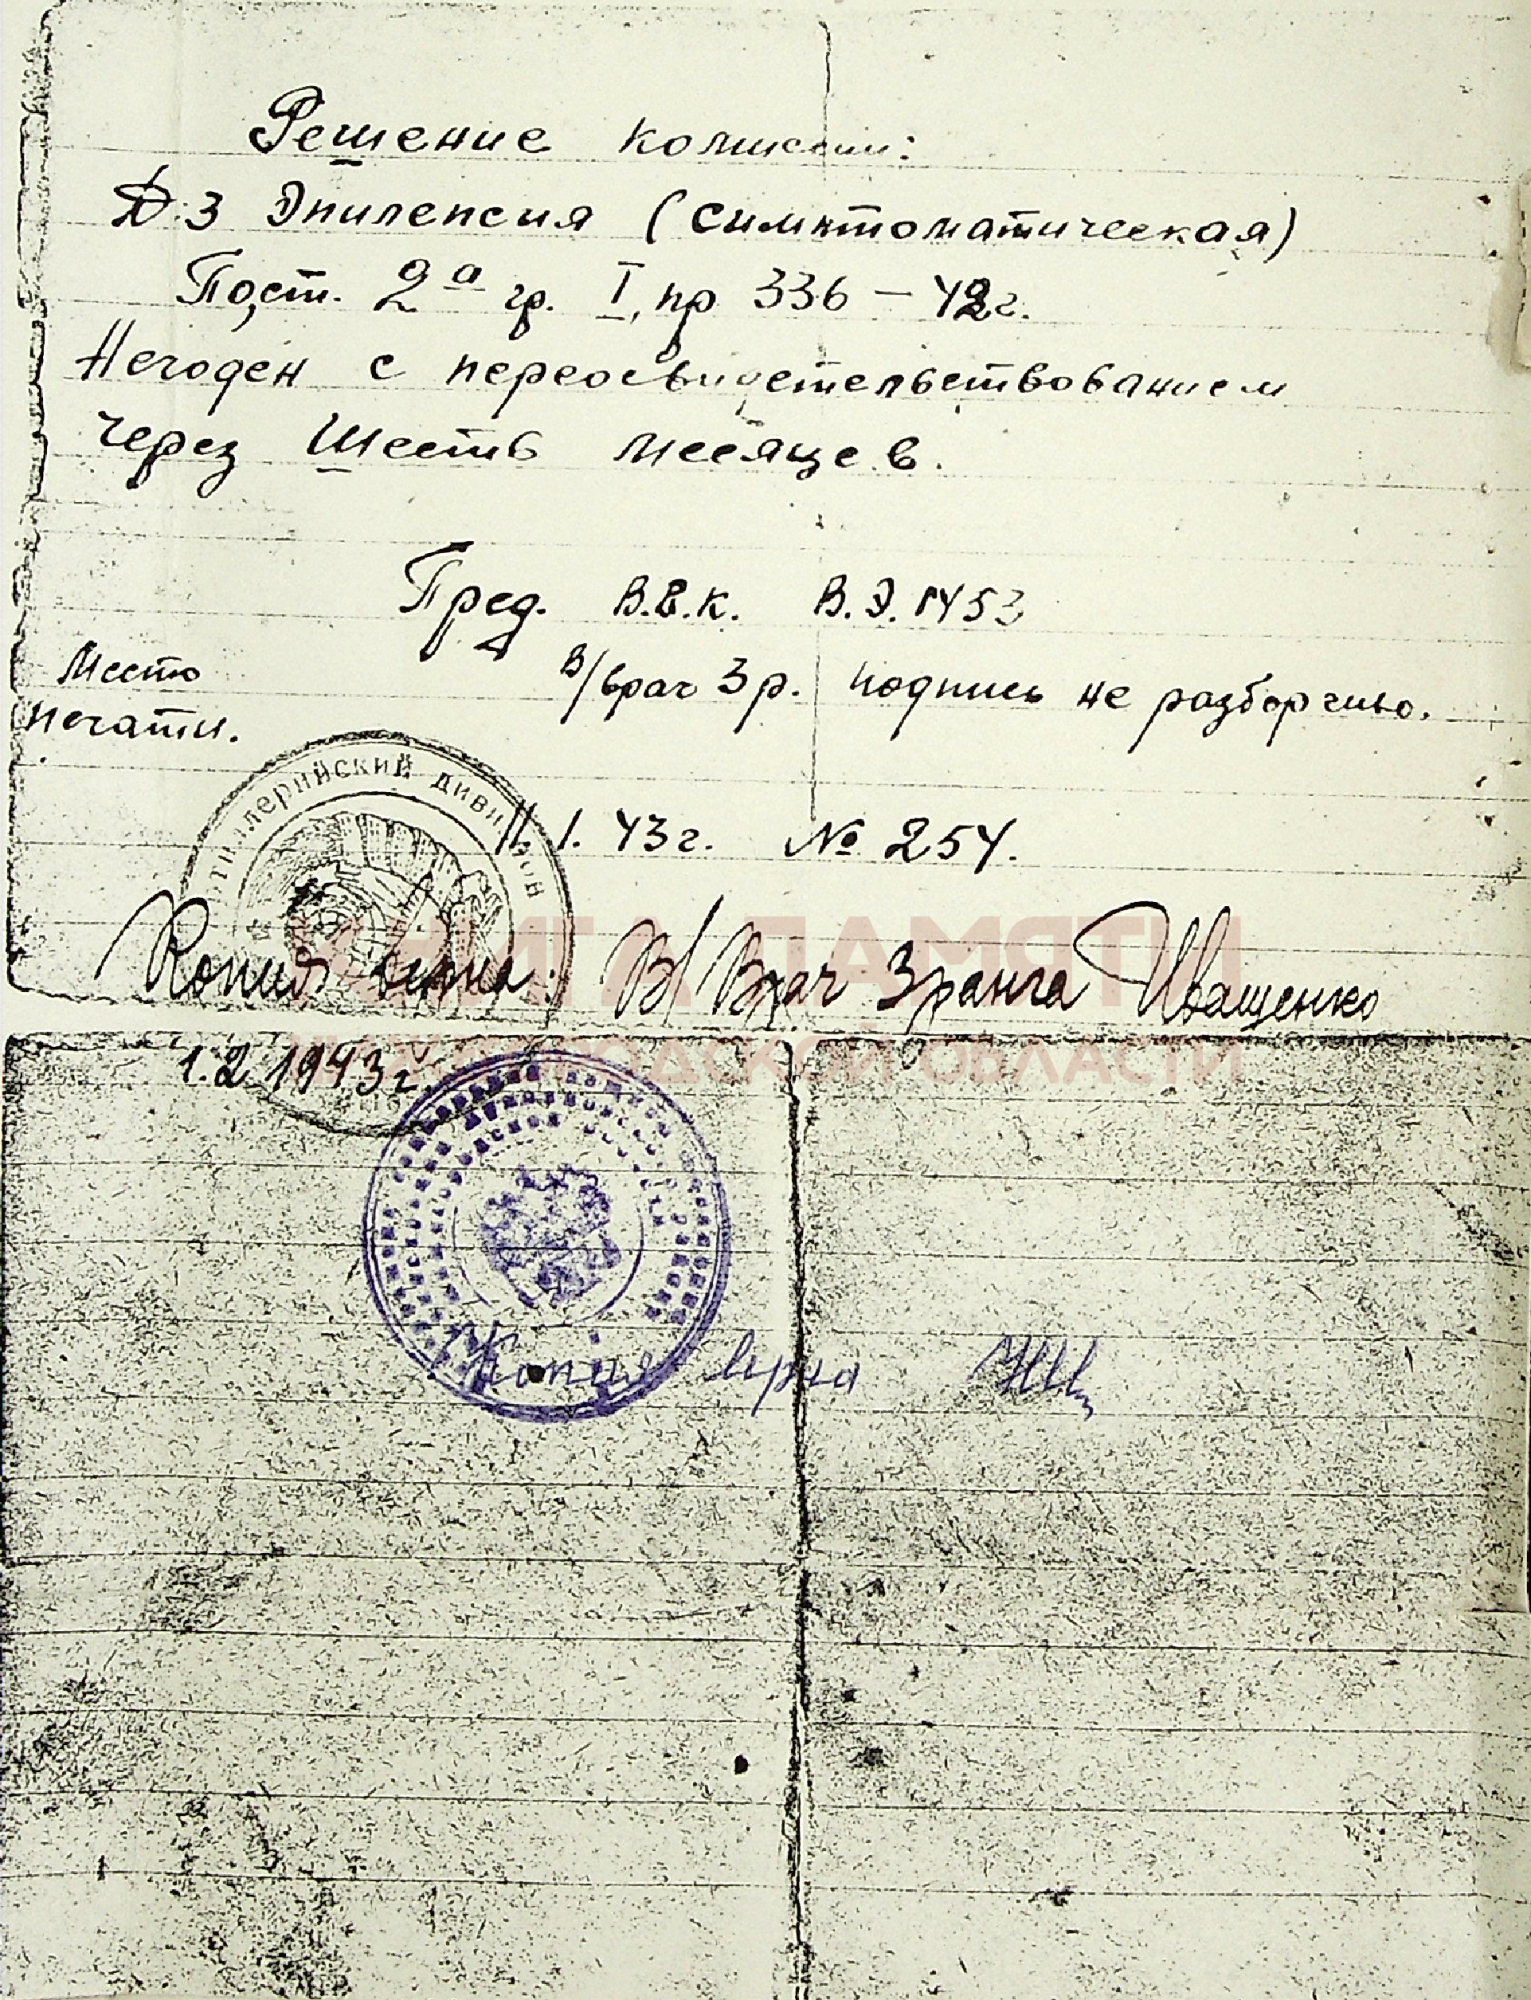 Решение комиссии:
Д:з Эпилепсия (симптоматическая)
Пост. 2а гр. I, пр 336 – 42г.
Негоден с переосвидетельствованием
через Шесть месяцев.
Пред. В.В.К. В.Э. 1453
Место
печати.
В/врач 3 р. подпись не разборчиво.
артиллерийский дивизион
11.1.43г. № 254.
КНИГА ПАМЯТИ
Копия верна. В/Врач 3 ранга Иващенко
ОБЛАСТИ
1.2.1943г.
Копия верна